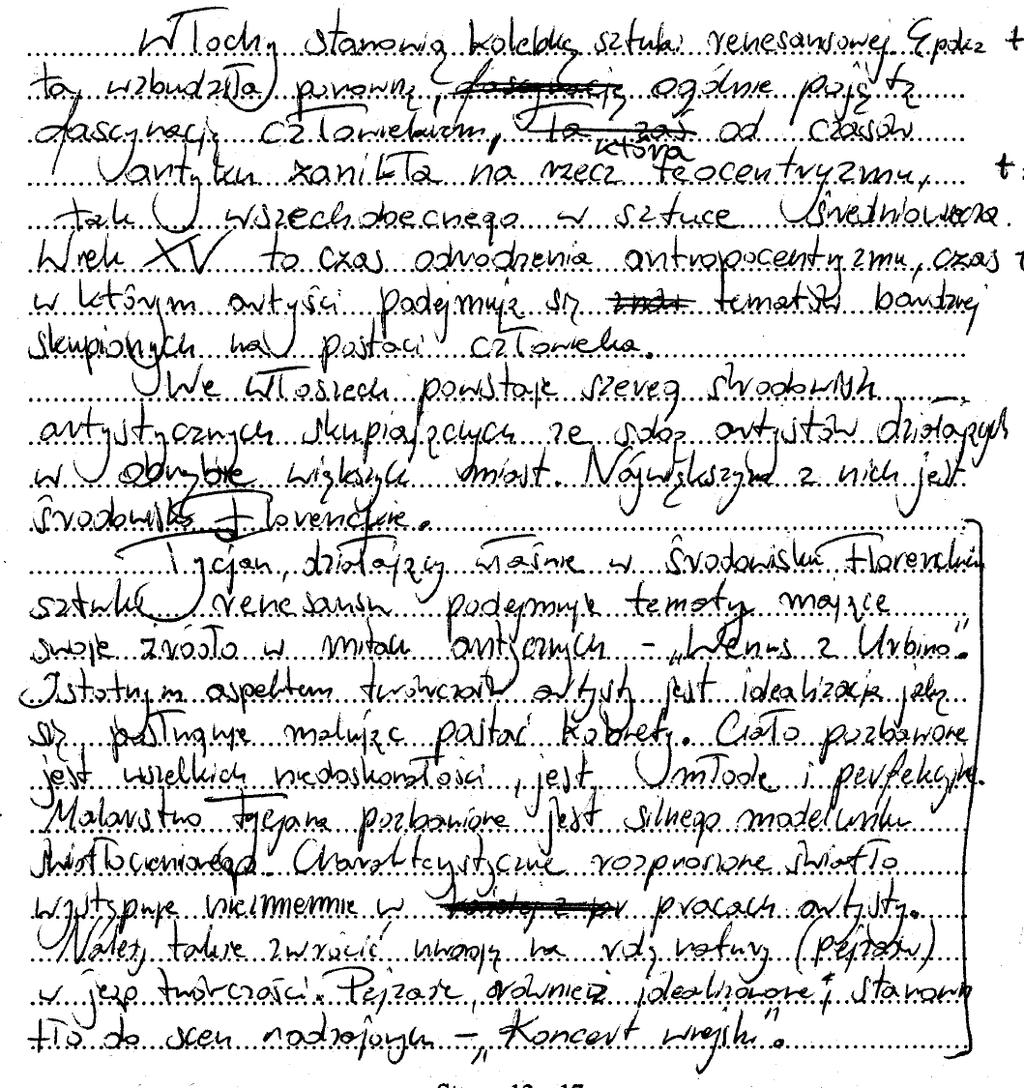 Włochy stanowią kolebkę sztuki renesansowej. Epoka +
ta wzbudziła ponowną, fascynację ogólnie pojętą
fascynację człowiekiem, ta zaś od czasów
która
antyku zanikła na rzecz teocentryzmu, +
tak wszechobecnego w sztuce średniowiecza.
Wiek XV to czas odrodzenia antropocentyzmu, czas
w którym artyści podejmują się tematyki bardziej
skupionych na postaci człowieka.
We Włoszech powstaje szereg środowisk
artystycznych skupiających ze sobą artystów działających
w obrębie większych miast. Największym z nich jest
środowisko Florenckie.
Tycjan, działający właśnie w środowisku florenckim
sztukę renesansu podejmuje tematy mające
swoje źródło w mitach antycznych - „Wenus z Urbino".
Istotnym aspektem twórczości artysty jest idealizacja jaką
się posługuje malując postać kobiety. Ciało pozbawione
jest wszelkich niedoskonałości, jest młode i perfekcyjne.
Malarstwo Tycjana pozbawione jest silnego modelunku
światłocieniowego. Charakterystyczne rozproszone światło
występuje niezmiennie w pracach artysty.
Należy także zwrócić uwagę na rolę natury (pejzażu)
w jego twórczości. Pejzaże, również idealizowane, stanowią
tło do scen nadrzędnych - „Koncert wiejski".